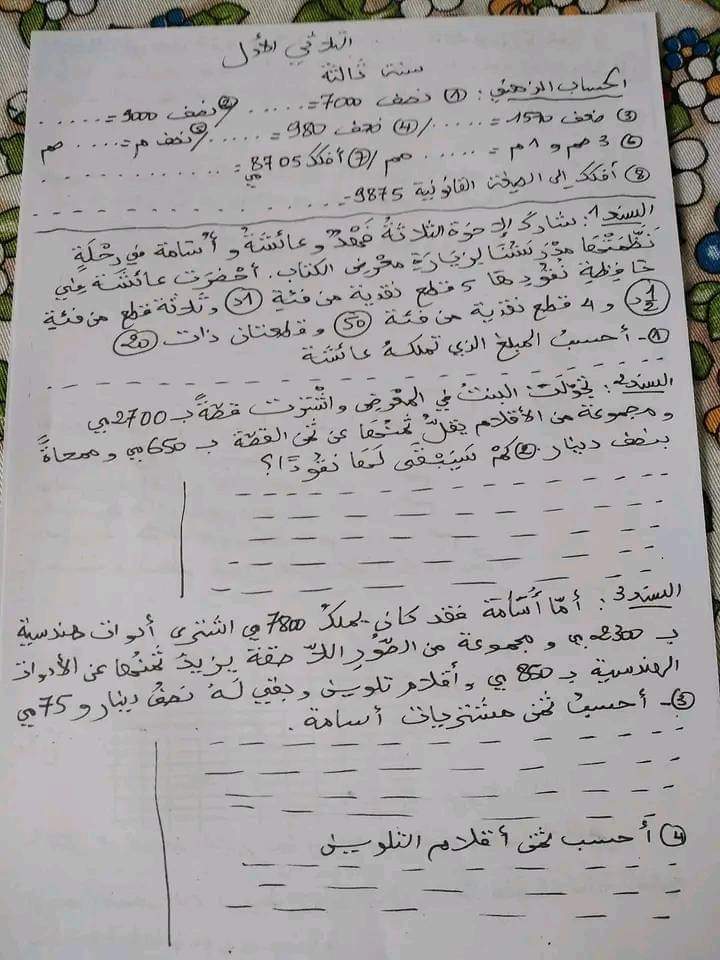 الثلاثي الأول
سنة ثالثة
الحساب الذهني : ① نصف 7000 = ..... / ② نصف 9000 = ......
③ ضعف 1570 = ...... / ④ نصف 980 = ...... / ⑤ نصف م = .... صم
⑥ 3 صم و 1 م = ..... صم / ⑦ أفكك 8705 مي = .............
⑧ أفكك إلى الصيغة القانونية 9875 - - - - - - -
السند 1 : شارك الإخوة الثلاثة فهد وعائشة وأسامة في رحلة
نظمتها مدرستنا لزيارة معرض الكتاب. أحضرت عائشة في
حافظة نقودها 5 قطع نقدية من فئة (1د) وثلاثة قطع من فئة
(1/2 د) و 4 قطع نقدية من فئة (50) وقطعتان ذات (20)
①- أحسب المبلغ الذي تملكه عائشة
السند 2 : تجولت البنت في المعرض واشترت قصة بـ 2700 مي
ومجموعة من الأقلام يقل ثمنها عن ثمن القصة بـ 650 مي وممحاة
بنصف دينار. ② كم سيبقى لها نقودا ؟
السند 3 : أمّا أسامة فقد كان يملك 7800 مي اشترى أدوات هندسية
بـ 2300 مي و مجموعة من الصور اللاصقة يزيد ثمنها عن الأدوات
الهندسية بـ 850 مي وأقلام تلوين وبقي له نصف دينار و 75 مي
③- أحسب ثمن مشتريات أسامة.
④ أحسب ثمن أقلام التلوين